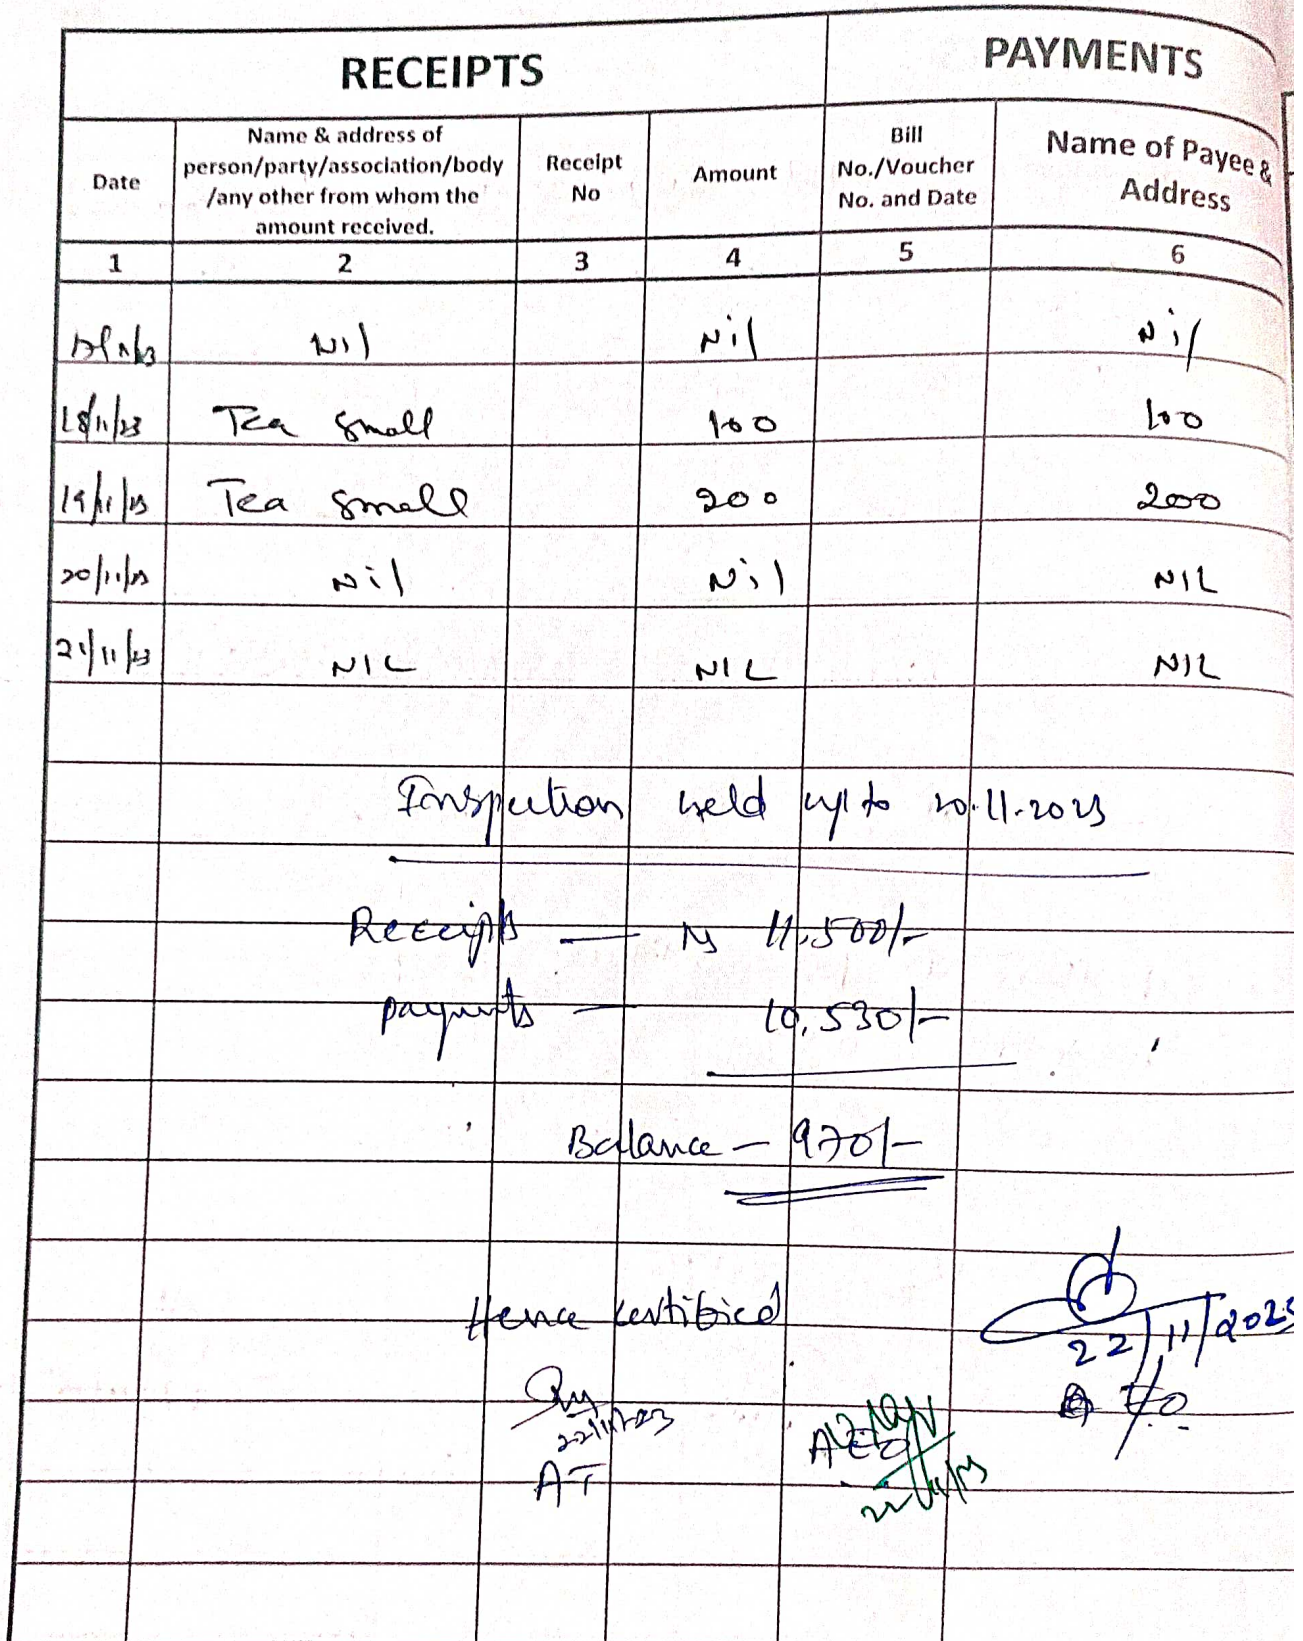 RECEIPTS PAYMENTS
Date Name & address of person/party/association/body /any other from whom the amount received. Receipt No Amount Bill No./Voucher No. and Date Name of Payee & Address
1 2 3 4 5 6
Nil Nil Nil
18/11/23 Tea small 100 100
19/11/23 Tea small 200 200
20/11/23 Nil Nil NIL
21/11/23 NIL NIL NIL
Inspection held up to 20.11.2023
Receipts — Rs 11,500/-
payments — 10,530/-
Balance — 970/-
Hence certified
22/11/2023
22/11/23
AEO
AT
22/11/23